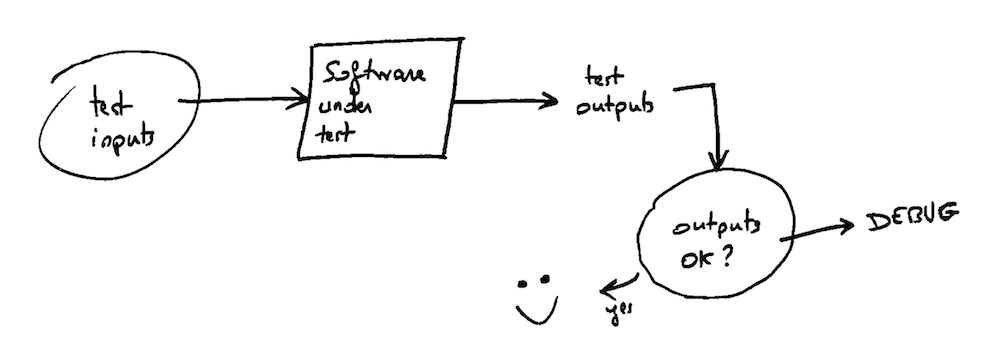 test
inputs
Software
under
test
test
outputs
outputs
OK?
DEBUG
yes